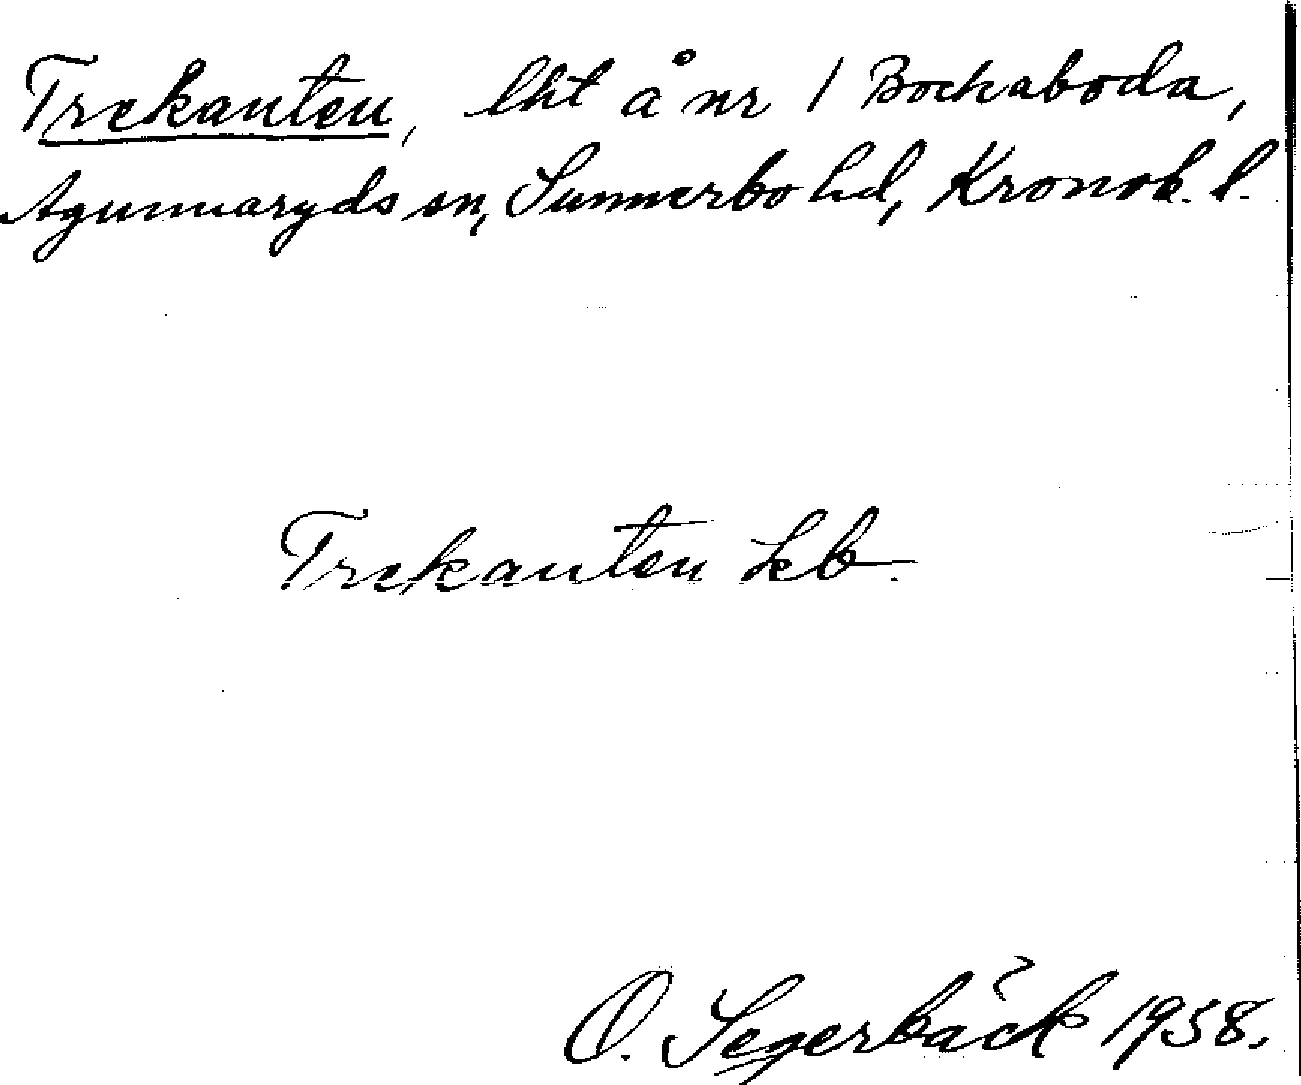 Trekanten, lht å nr 1 Bockaboda,
Agunnaryds sn, Sunnerbo hd, Kronob. l.
Trekanten kb.
O. Segerbäck 1958.